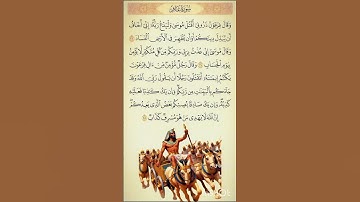 سورة غافر
وَقَالَ فِرْعَوْنُ ذَرُونِي أَقْتُلْ مُوسَىٰ وَلْيَدْعُ رَبَّهُ إِنِّي أَخَافُ
أَن يُبَدِّلَ دِينَكُمْ أَوْ أَن يُظْهِرَ فِي الْأَرْضِ الْفَسَادَ
وَقَالَ مُوسَىٰ إِنِّي عُذْتُ بِرَبِّي وَرَبِّكُم مِّن كُلِّ مُتَكَبِّرٍ لَّا يُؤْمِنُ
بِيَوْمِ الْحِسَابِ وَقَالَ رَجُلٌ مُّؤْمِنٌ مِّنْ آلِ فِرْعَوْنَ
يَكْتُمُ إِيمَانَهُ أَتَقْتُلُونَ رَجُلًا أَن يَقُولَ رَبِّيَ اللَّهُ وَقَدْ
جَاءَكُم بِالْبَيِّنَاتِ مِن رَّبِّكُمْ وَإِن يَكُ كَاذِبًا فَعَلَيْهِ
كَذِبُهُ وَإِن يَكُ صَادِقًا يُصِبْكُم بَعْضُ الَّذِي يَعِدُكُمْ
إِنَّ اللَّهَ لَا يَهْدِي مَنْ هُوَ مُسْرِفٌ كَذَّابٌ